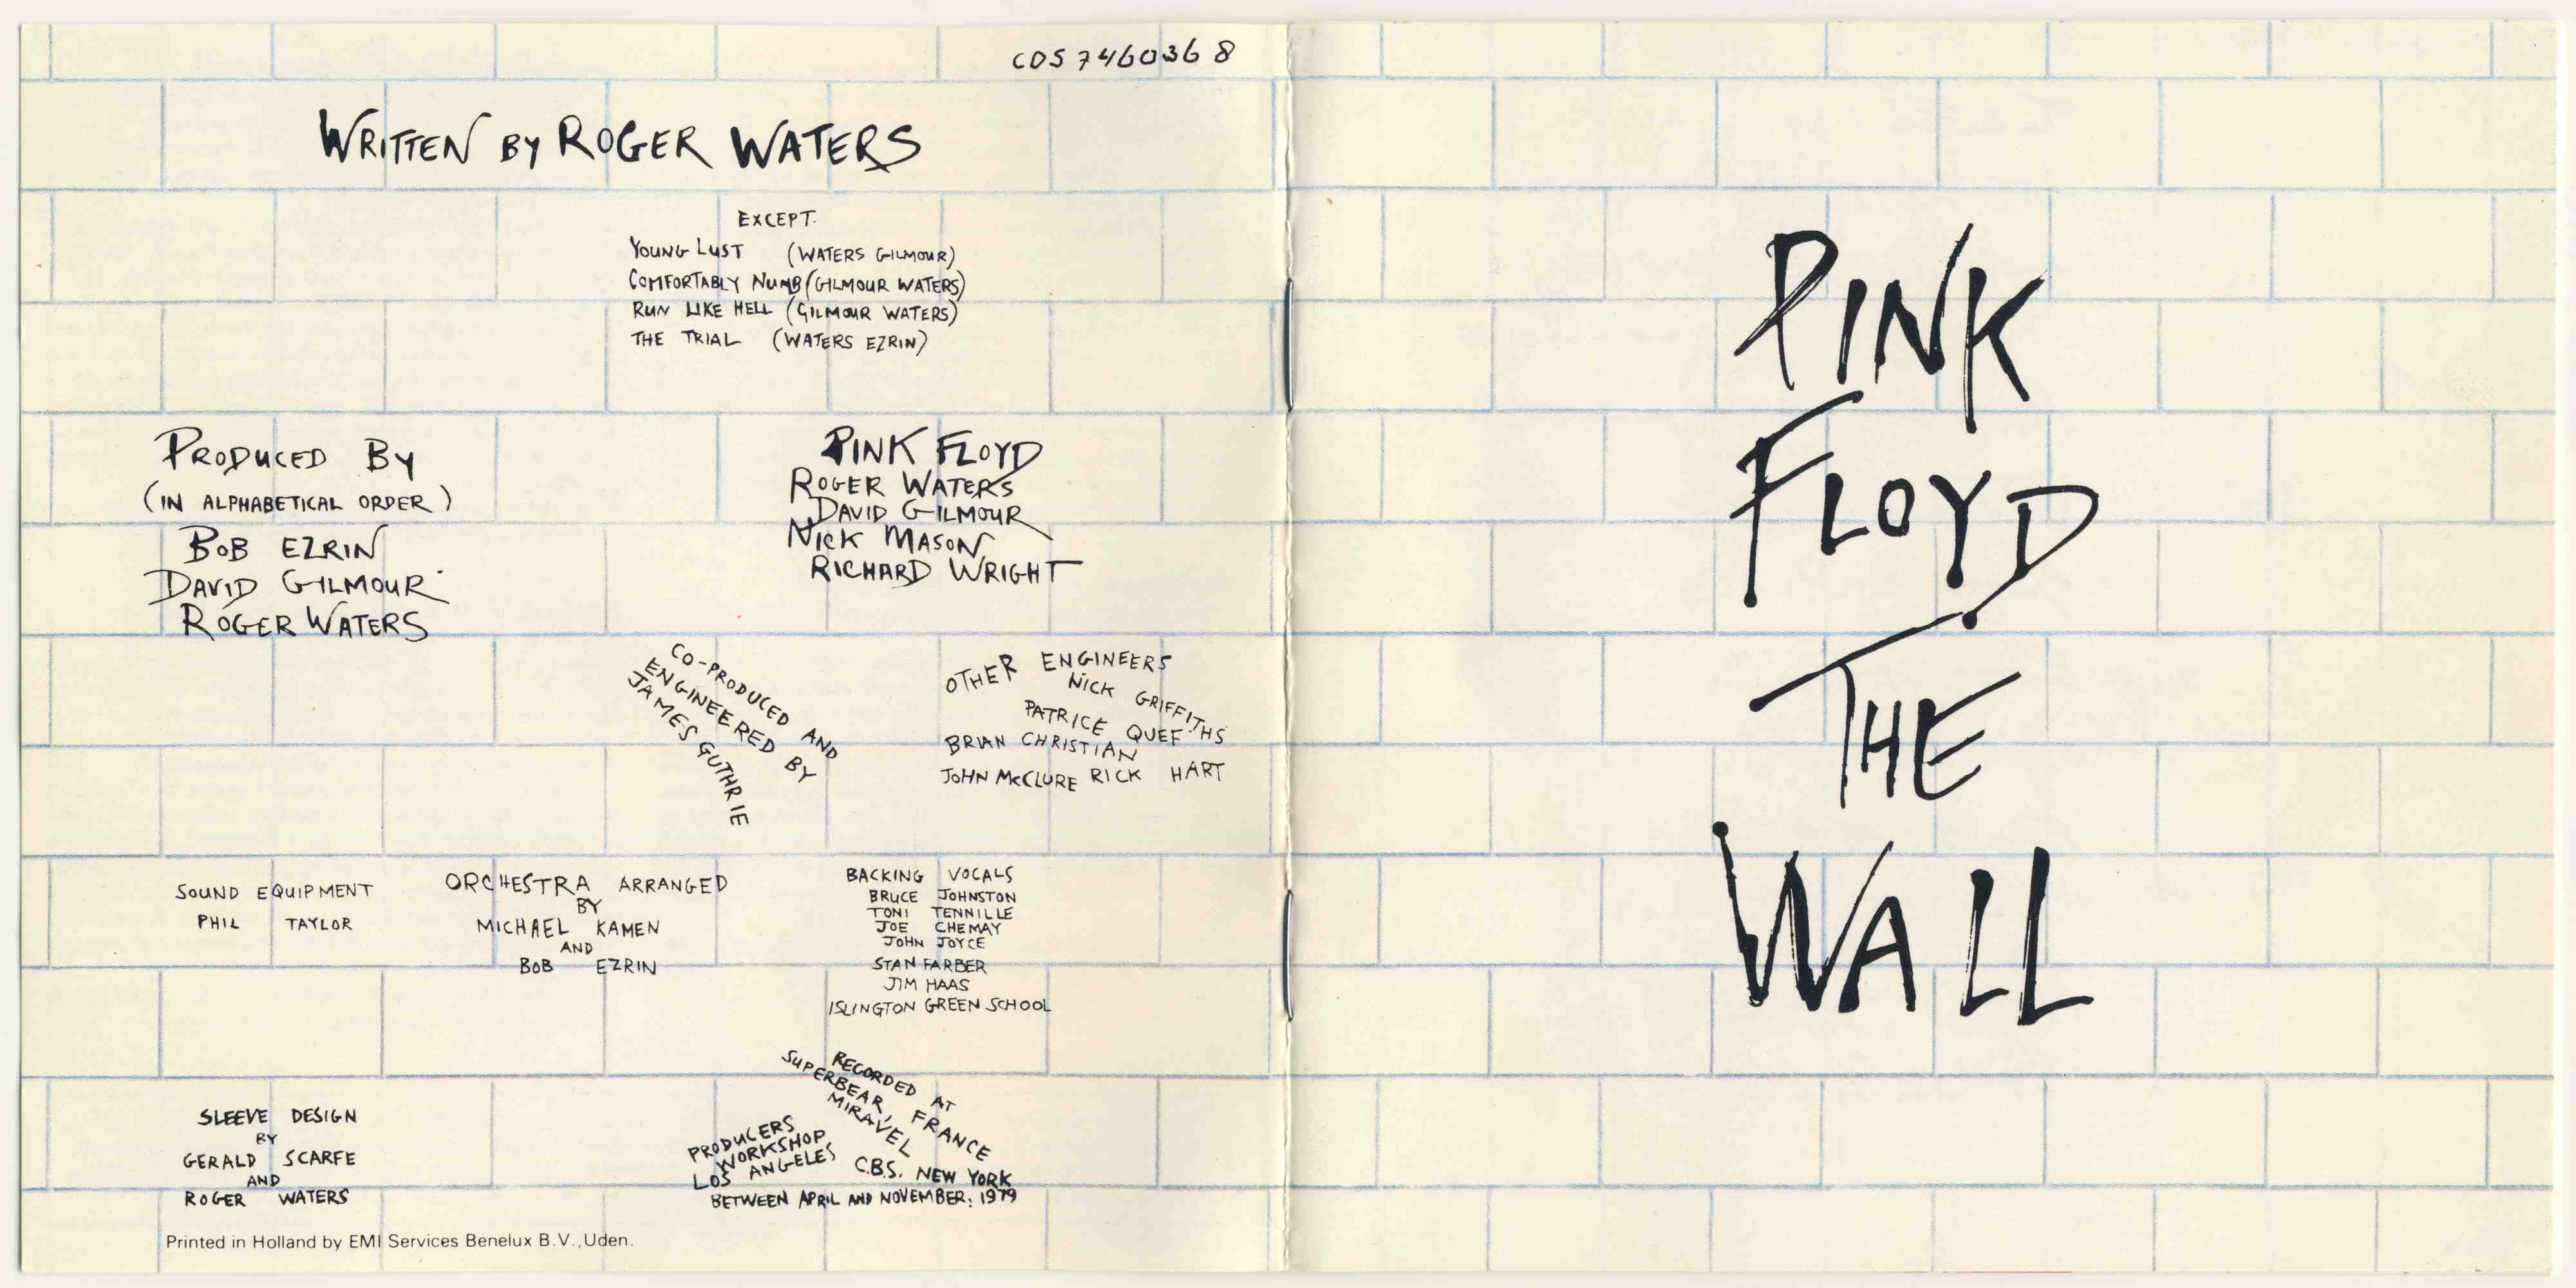 CDS 7460368
WRITTEN BY ROGER WATERS
EXCEPT.
YOUNG LUST (WATERS GILMOUR)
COMFORTABLY NUMB (GILMOUR WATERS)
RUN LIKE HELL (GILMOUR WATERS)
THE TRIAL (WATERS EZRIN)
PRODUCED BY
(IN ALPHABETICAL ORDER)
BOB EZRIN
DAVID GILMOUR
ROGER WATERS
PINK FLOYD
ROGER WATERS
DAVID GILMOUR
NICK MASON
RICHARD WRIGHT
CO-PRODUCED AND
ENGINEERED BY
JAMES GUTHRIE
OTHER ENGINEERS
NICK GRIFFITHS
PATRICE QUEF
BRIAN CHRISTIAN
JOHN McCLURE RICK HART
SOUND EQUIPMENT
PHIL TAYLOR
ORCHESTRA ARRANGED
BY
MICHAEL KAMEN
AND
BOB EZRIN
BACKING VOCALS
BRUCE JOHNSTON
TONI TENNILLE
JOE CHEMAY
JOHN JOYCE
STAN FARBER
JIM HAAS
ISLINGTON GREEN SCHOOL
SLEEVE DESIGN
BY
GERALD SCARFE
AND
ROGER WATERS
RECORDED AT
SUPERBEAR, FRANCE
MIRAVEL
PRODUCERS
WORKSHOP
LOS ANGELES
C.B.S. NEW YORK
BETWEEN APRIL AND NOVEMBER: 1979
Printed in Holland by EMI Services Benelux B.V., Uden.
PINK
FLOYD
THE
WALL